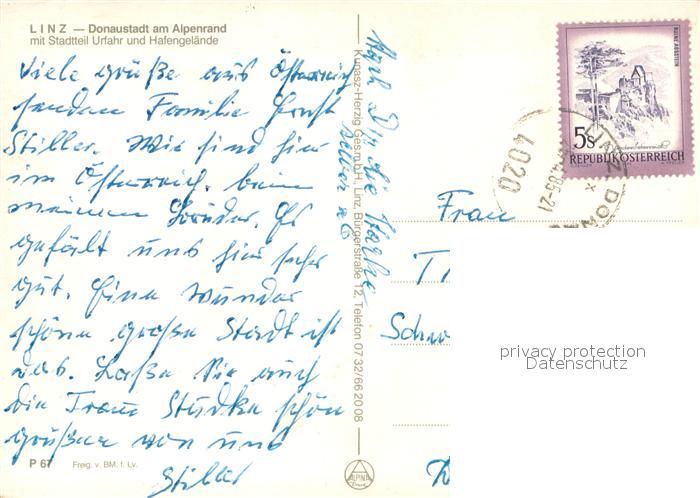 LINZ — Donaustadt am Alpenrand
mit Stadtteil Urfahr und Hafengelände
Viele grüße aus Österreich
senden Familie Ernst
Stiller. Wir sind hier
im Österreich. beim
meinen Bruder. Es
gefält uns hier sehr
gut. Eine wunder
schöne große Stadt ist
das. Laße Sie auch
die Frau Studka schön
grüßen von uns
Stiller
P 67 Freig. v. BM. f. Lv.
Die Karte
Kunasz-Herzig Ges.m.b.H., Linz, Bürgerstraße 12, Telefon 07 32/66 20 08
ALPINA
Druck
RUINE AGGSTEIN
5s
REPUBLIK ÖSTERREICH
LINZ DON
4020
85-21
Frau
T
Schw
privacy protection
Datenschutz